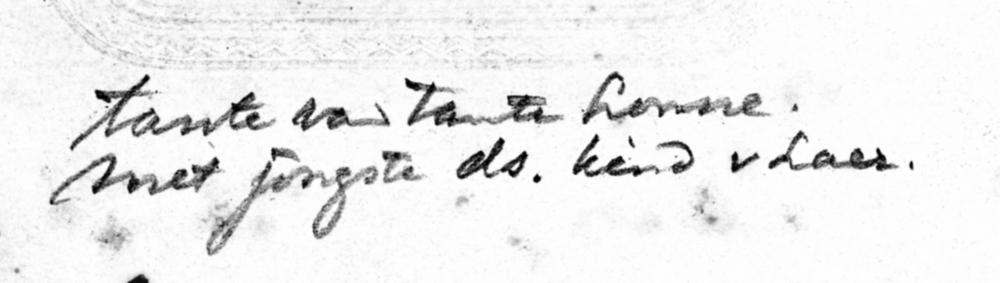 tante van tante Lonne.
met jongste ds. kind v Laer.